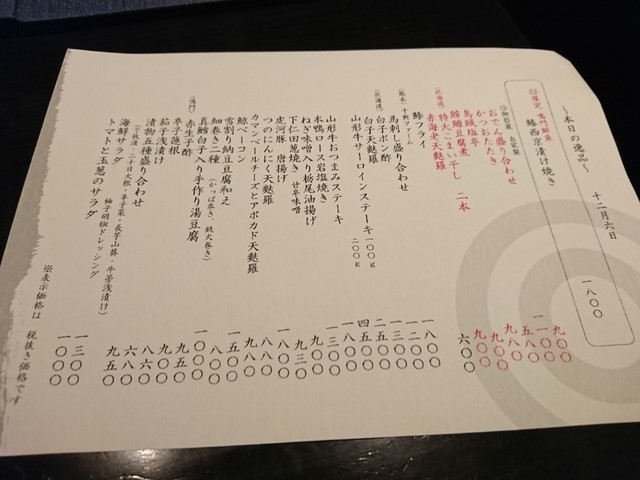 十二月六日
〜本日の逸品〜
鰆西京漬け焼き 一八〇〇
おでん盛り合わせ 九〇〇
かつおたたき 一一〇〇
烏賊塩辛 五八〇
鮟鱇豆腐煮 九八〇
特大こまい干し 九〇〇
赤海老天麩羅 二本 九〇〇
六〇〇
鯵フライ
馬刺し盛り合わせ 一八〇〇
白子ポン酢 一二〇〇
白子天麩羅 一三〇〇
山形牛サーロインステーキ 一〇〇g 二五〇〇
二〇〇g 四五〇〇
山形牛おつまみステーキ 一八〇〇
本鴨ロース岩塩焼き 一三〇〇
ねぎ味噌入り栃尾油揚げ 九〇〇
下仁田葱焼き 甘辛味噌 九三〇
虎河豚 唐揚げ 一八〇〇
つのにんにく天麩羅 九八〇
カマンベールチーズとアボカド天麩羅 八八〇
鯨ベーコン 一五〇〇
雪割り納豆豆腐和え 八八〇
細巻き二種 (かっぱ巻き、鉄火巻き)
真鱈白子入り手作り湯豆腐 一〇〇〇
赤生子酢 九五〇
辛子蓮根 九八〇
茄子浅漬け 八六〇
漬物五種盛り合わせ 八八〇
海鮮サラダ 柚子胡椒ドレッシング 一三〇〇
トマトと玉葱のサラダ 一〇〇〇
※表示価格は 税抜き価格です